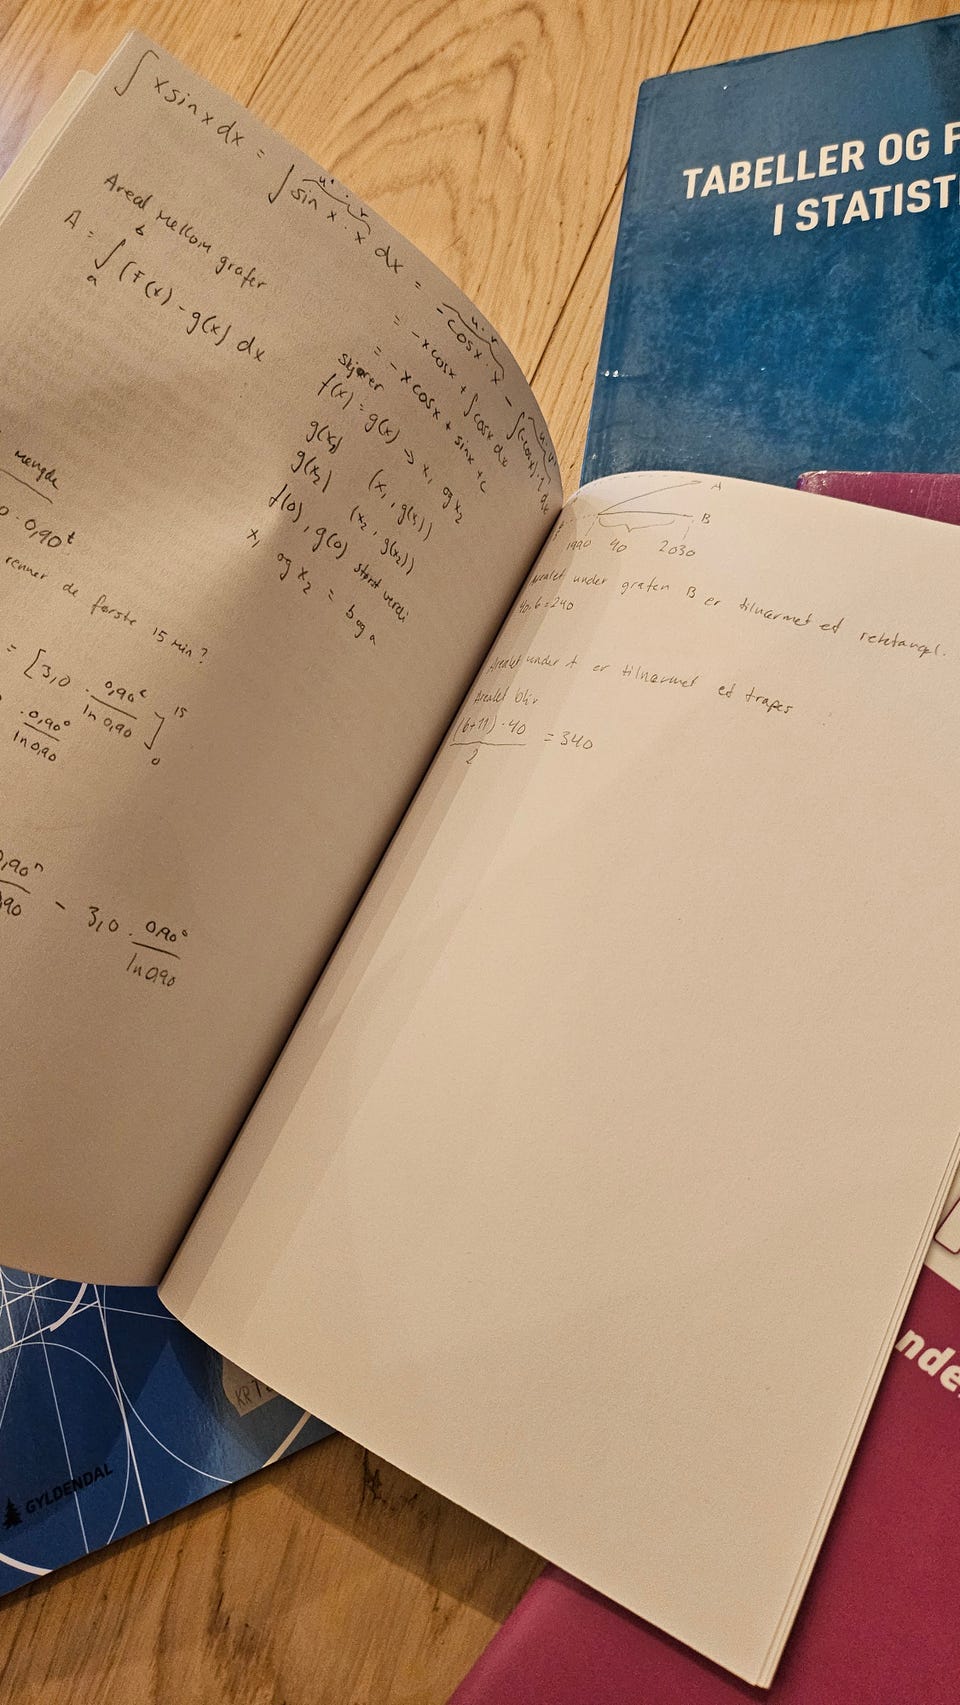 ∫ x sin x dx = ∫ sin x · x dx = -cos x · x - ∫(-cos x) · 1 dx
u' · v
u · v
u · v'
= -x cos x + ∫ cos x dx
= -x cos x + sin x + c
Areal mellom grafer
A = ∫ (f(x) - g(x) dx
b
a
skjærer
f(x) = g(x) → x₁ og x₂
g(x₁) (x₁, g(x₁))
g(x₂) (x₂, g(x₂))
f(0), g(0) størst verdi
x₁ og x₂ = b og a
mengde
0 · 0,90ᵗ
renner de første 15 min?
= [3,0 · 0,90ᵗ / ln 0,90]
15
0
· 0,90⁰ / ln 0,90
0,90ⁿ / 0,90 - 3,0 · 0,90⁰ / ln 0,90
A
B
1990 40 2030
Arealet under grafen B er tilnærmet et rektangel.
40 · 6 = 240
Arealet under A er tilnærmet et trapes
Arealet blir
(6+11) · 40 / 2 = 340
TABELLER OG F
I STATIST
GYLDENDAL
KR 1
nde